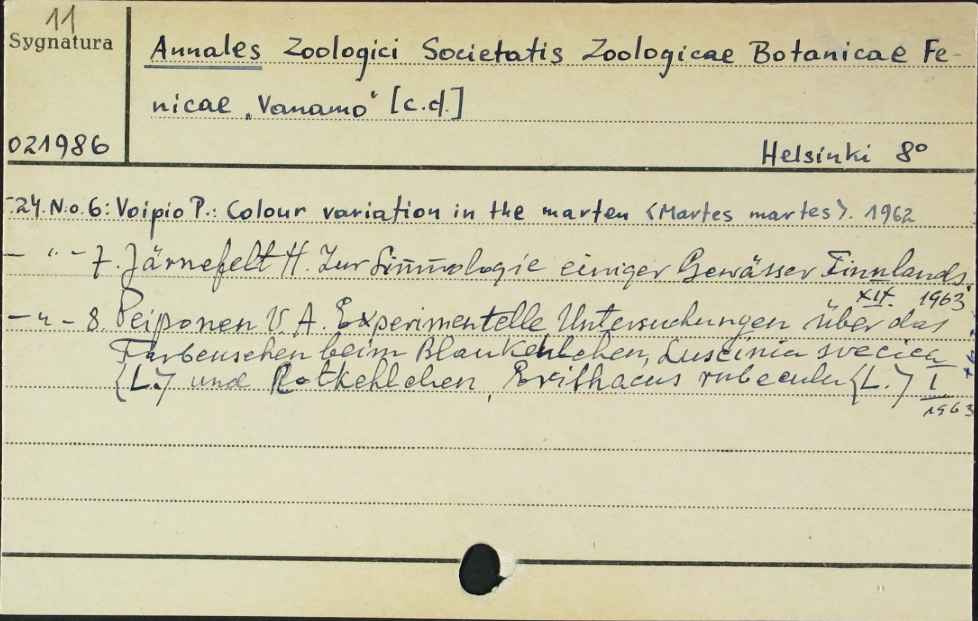 11
Sygnatura
Annales Zoologici Societatis Zoologicae Botanicae Fe-
nicae „Vanamo" [c.d.]
021986
Helsinki 8°
T.24. No. 6: Voipio P.: Colour variation in the marten <Martes martes>. 1962
– " – 7. Järnefelt H. Zur Limnologie einiger Gewässer Finnlands.
XIX. 1963
– " – 8. Peiponen V. A. Experimentelle Untersuchungen über das
Farbensehen beim Blaukehlchen, Luscinia svecica
(L.) und Rotkehlchen, Erithacus rubecula (L.) I
1963